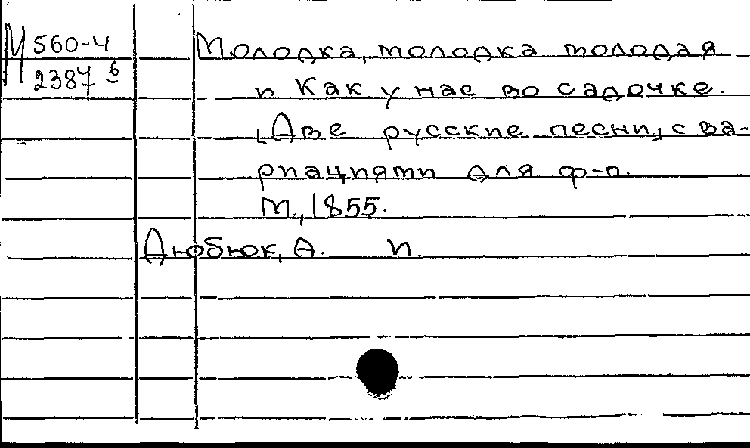 М 560-4 Молодка, молодка молодая
2387 б и Как у нас во садочке.
[Две русские песни, с ва-
риациями для ф-п.
М., 1855.
Дюбюк, А. И.